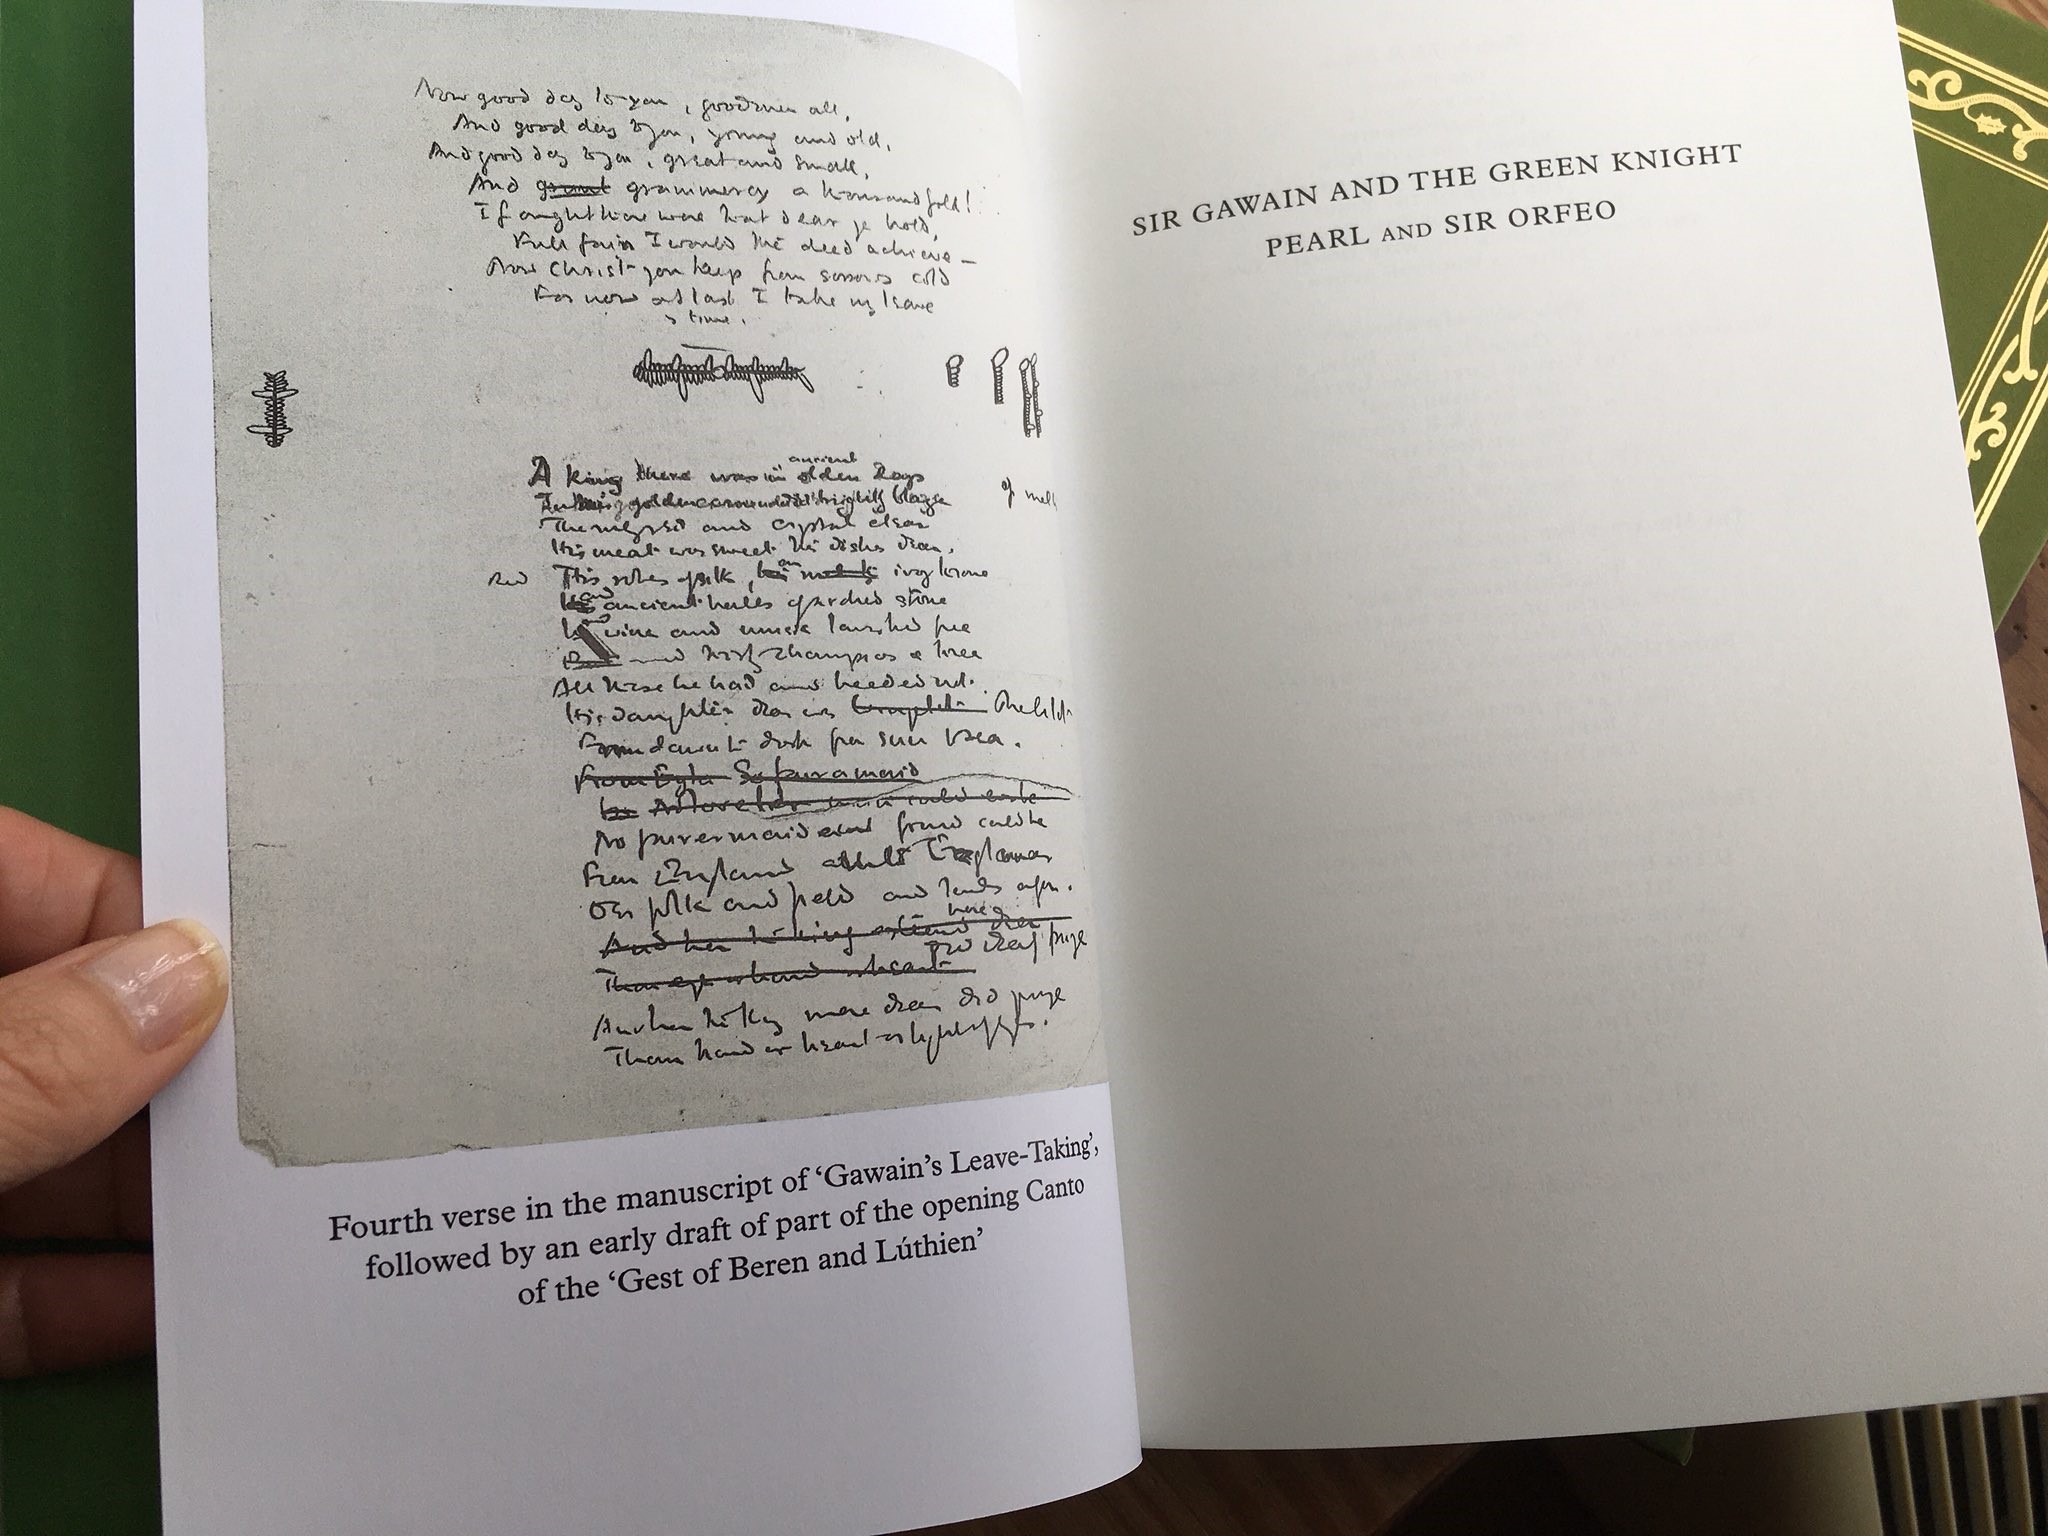 Now good day to you, goodmen all,
And good day to you, young and old,
And good day to you, great and small,
And grant grammercy a thousandfold!
If ought there were that dear ye hold,
Full fain I would the deed achieve –
Now Christ you keep from sorrows cold
For now at last I take my leave
A king there was in olden days
ancient
golden crown did brightly blaze
of
and crystal clear
His meat was sweet his dishes dear,
Red
His robes of silk, an ivory throne
and ancient halls of arched stone
and wine and music lavished free
and thirty champions
All these he had and heeded not.
His daughter dear was
From dawn to dark from sun to sea.
From So fair a maid
No purer maid found could be
From England
On folk and field and lands
And her the king
more dear
did dearly prize
Than hand or heart
And her the king more dear did prize
Than hand or heart or light of eyes.
SIR GAWAIN AND THE GREEN KNIGHT
PEARL AND SIR ORFEO
Fourth verse in the manuscript of ‘Gawain’s Leave-Taking’,
followed by an early draft of part of the opening Canto
of the ‘Gest of Beren and Lúthien’